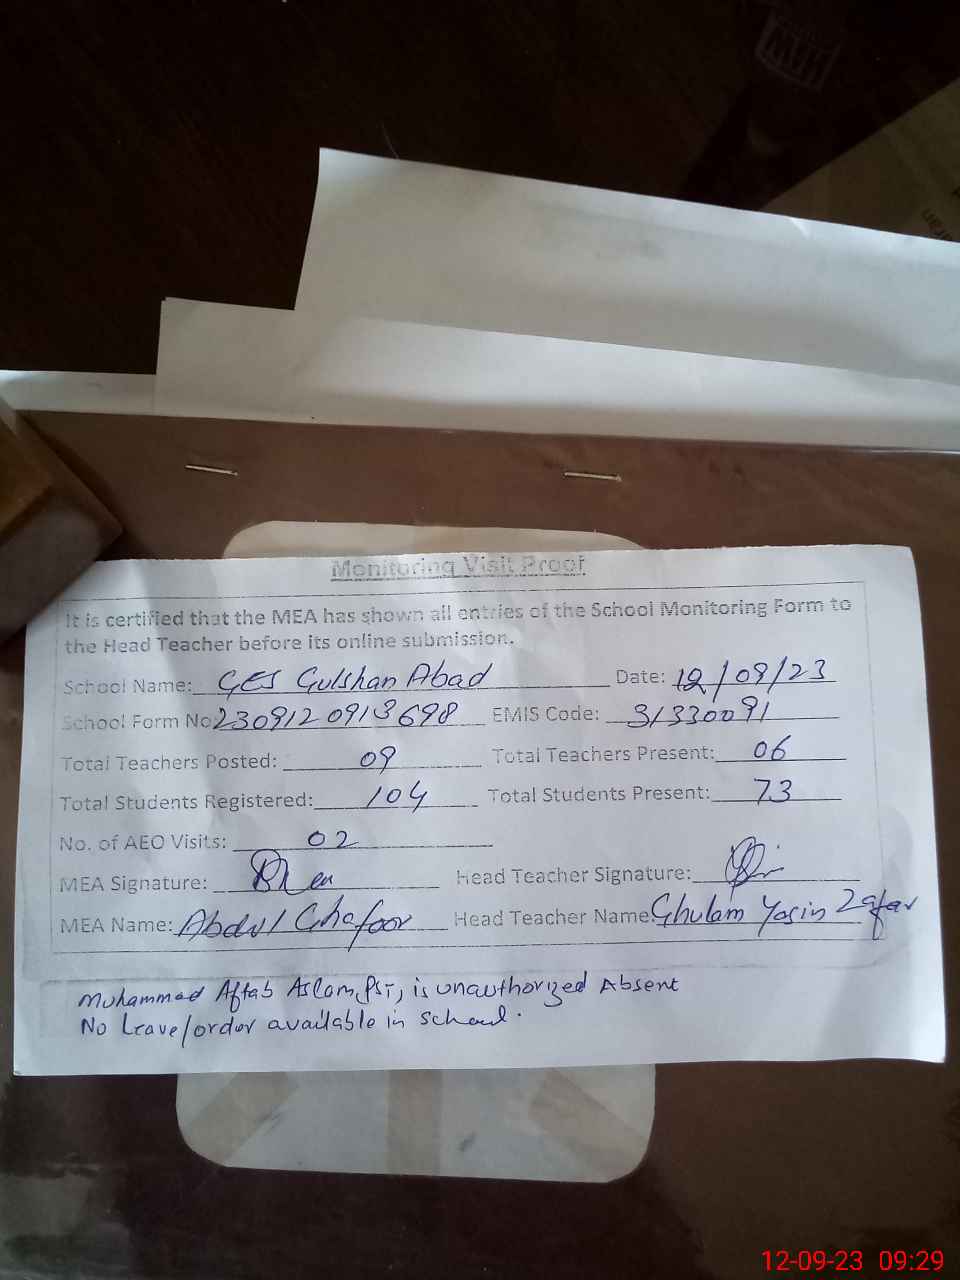 Monitoring Visit Proof
It is certified that the MEA has shown all entries of the School Monitoring Form to
the Head Teacher before its online submission.
School Name: GES Gulshan Abad Date: 12/09/23
School Form No: 2309120913698 EMIS Code: 31330091
Total Teachers Posted: 09 Total Teachers Present: 06
Total Students Registered: 104 Total Students Present: 73
No. of AEO Visits: 02
MEA Signature: Head Teacher Signature:
MEA Name: Abdul Ghafoor Head Teacher Name: Ghulam Yasin Zafar
Muhammad Aftab Aslam, PST, is unauthorized Absent
No Leave/order available in school.
12-09-23 09:29